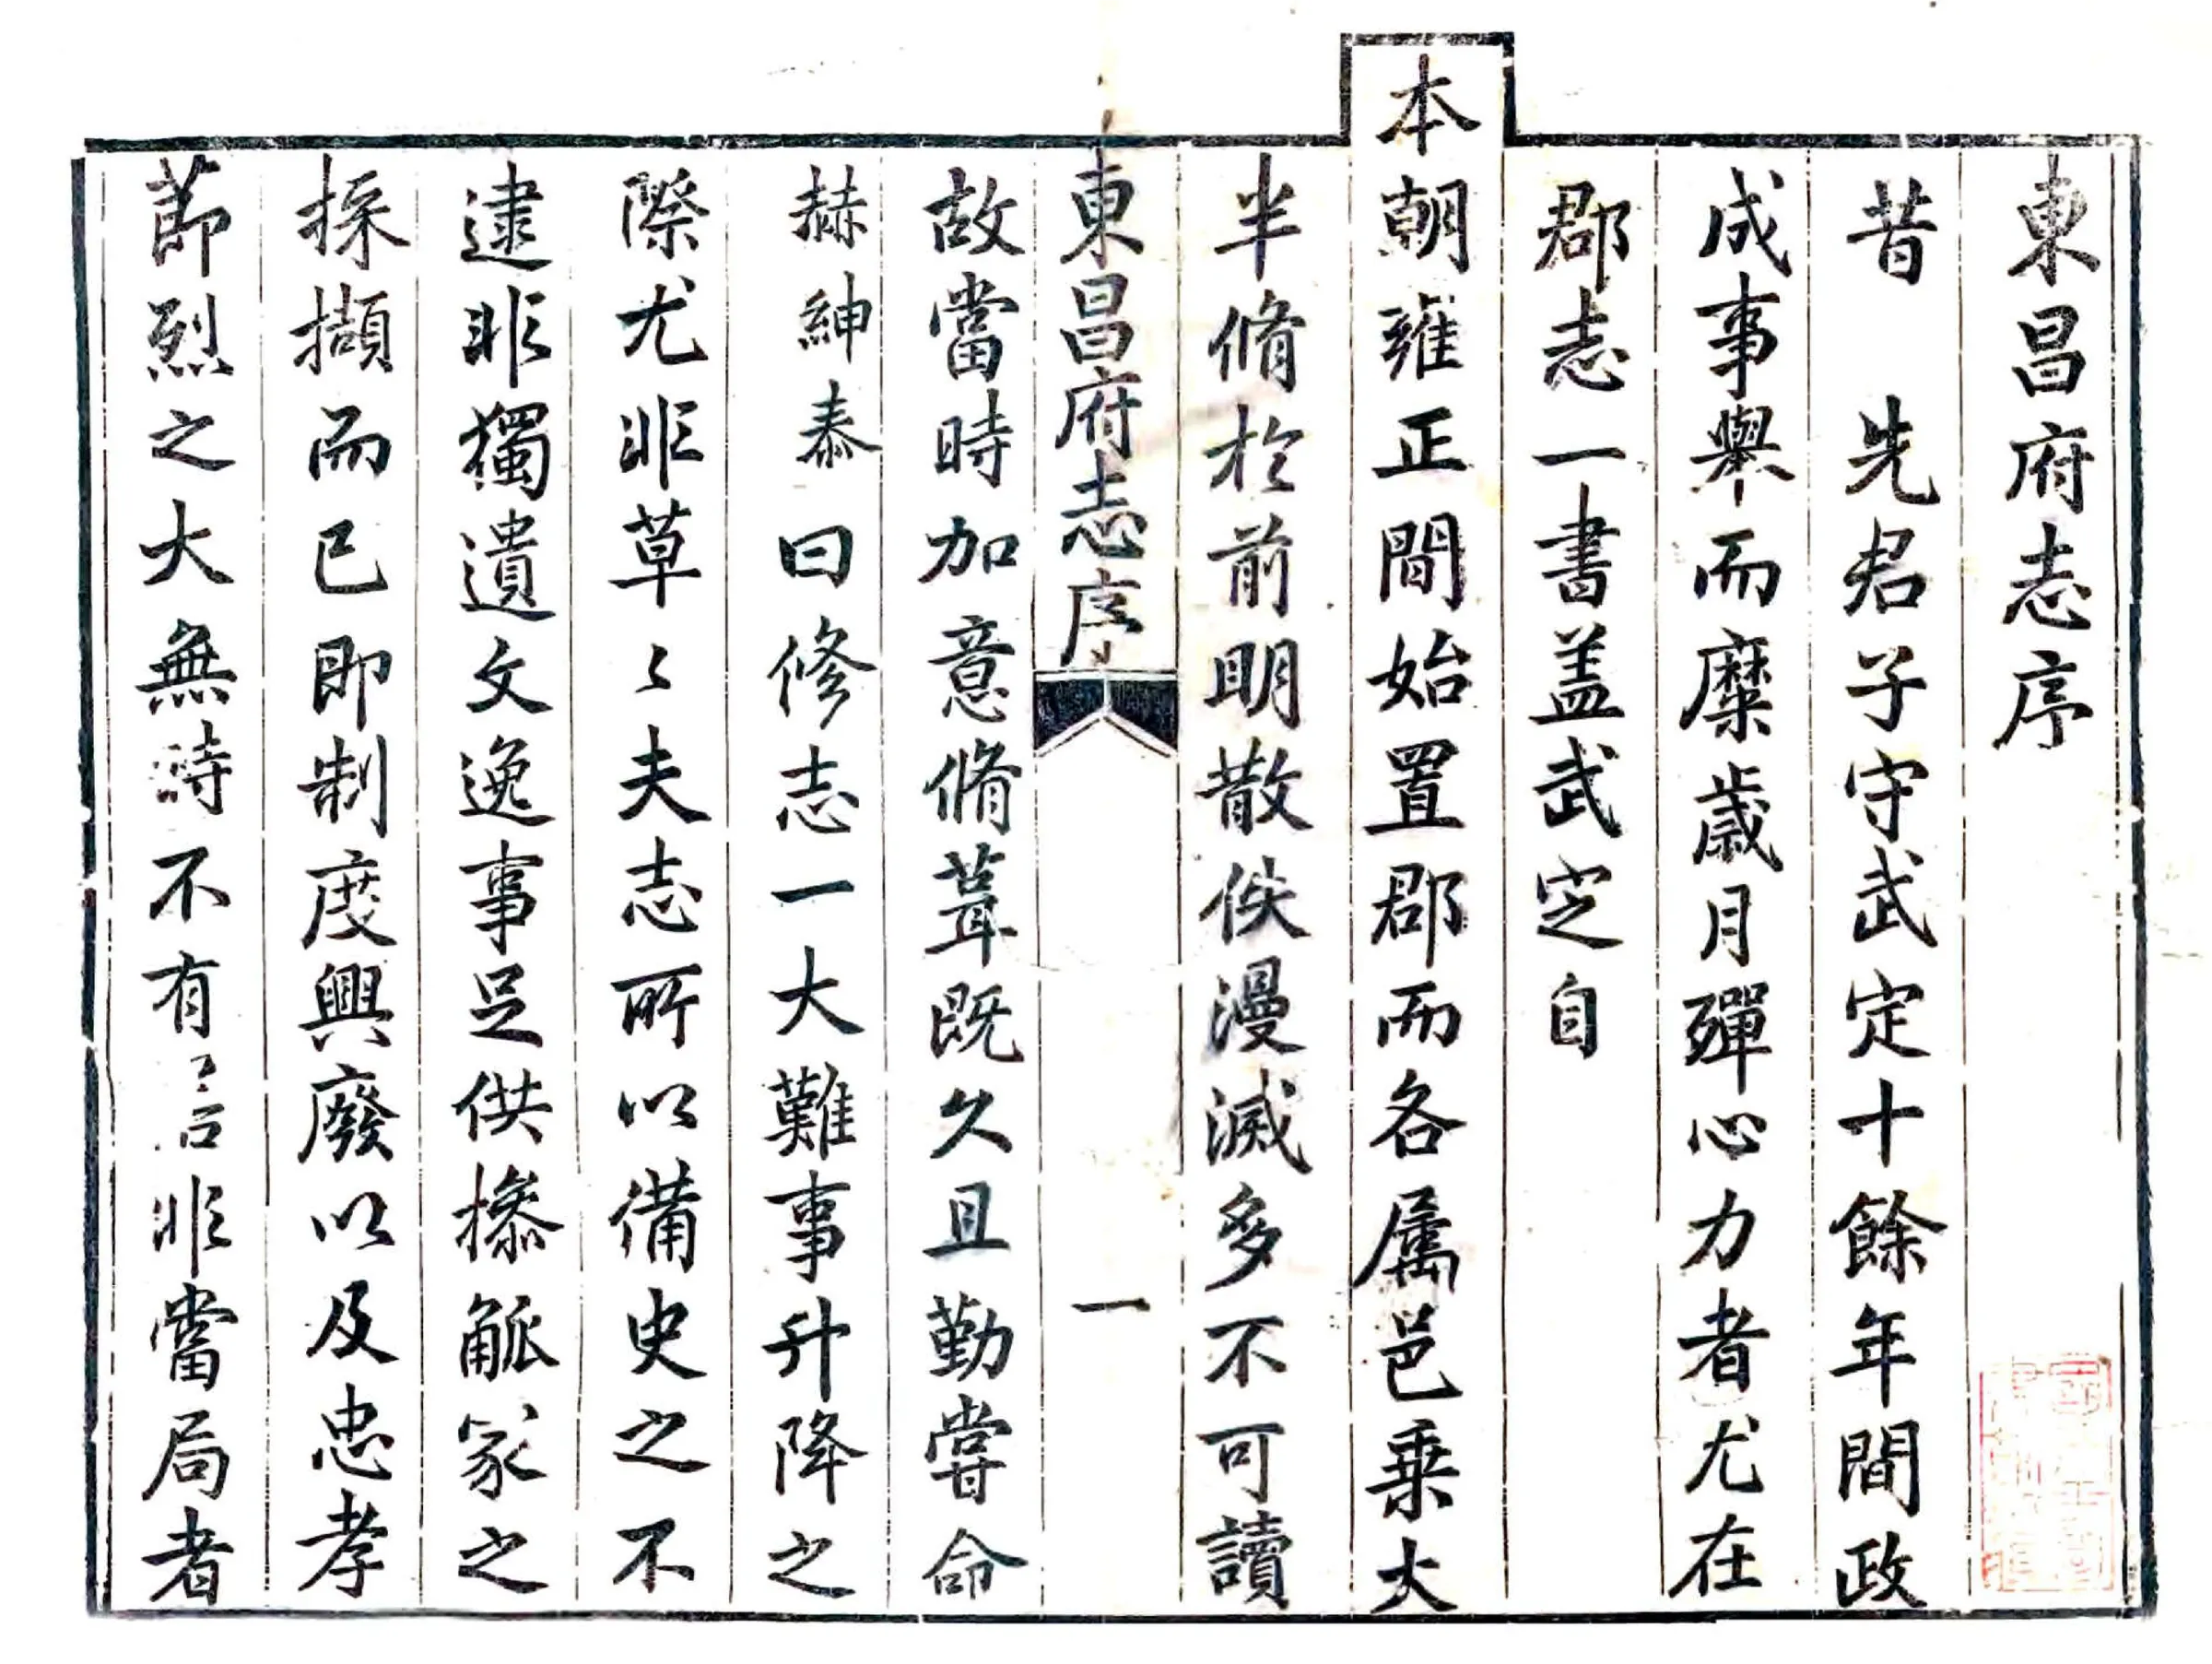 東昌府志序
昔 先君子守武定十餘年間政
成事舉而糜歲月殫心力者尤在
郡志一書盖武定自
本朝雍正間始置郡而各属邑乗大
半脩於前明散佚漫滅多不可讀
東昌府志序 一
故當時加意脩葺既久且勤嘗命
赫紳泰曰修志一大難事升降之
際尤非草〻夫志所以備史之不
逮非獨遺文逸事足供摻觚家之
採擷而已即制度興廢以及忠孝
節烈之大無時不有 非當局者